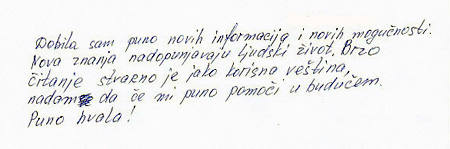 Dobila sam puno novih informacija i novih mogučnosti.
Nova znanja nadopunjavaju ljudski život. Brzo
čitanje stvarno je jako korisna veština,
nadam se da če mi puno pomoči u budučem.
Puno hvala!